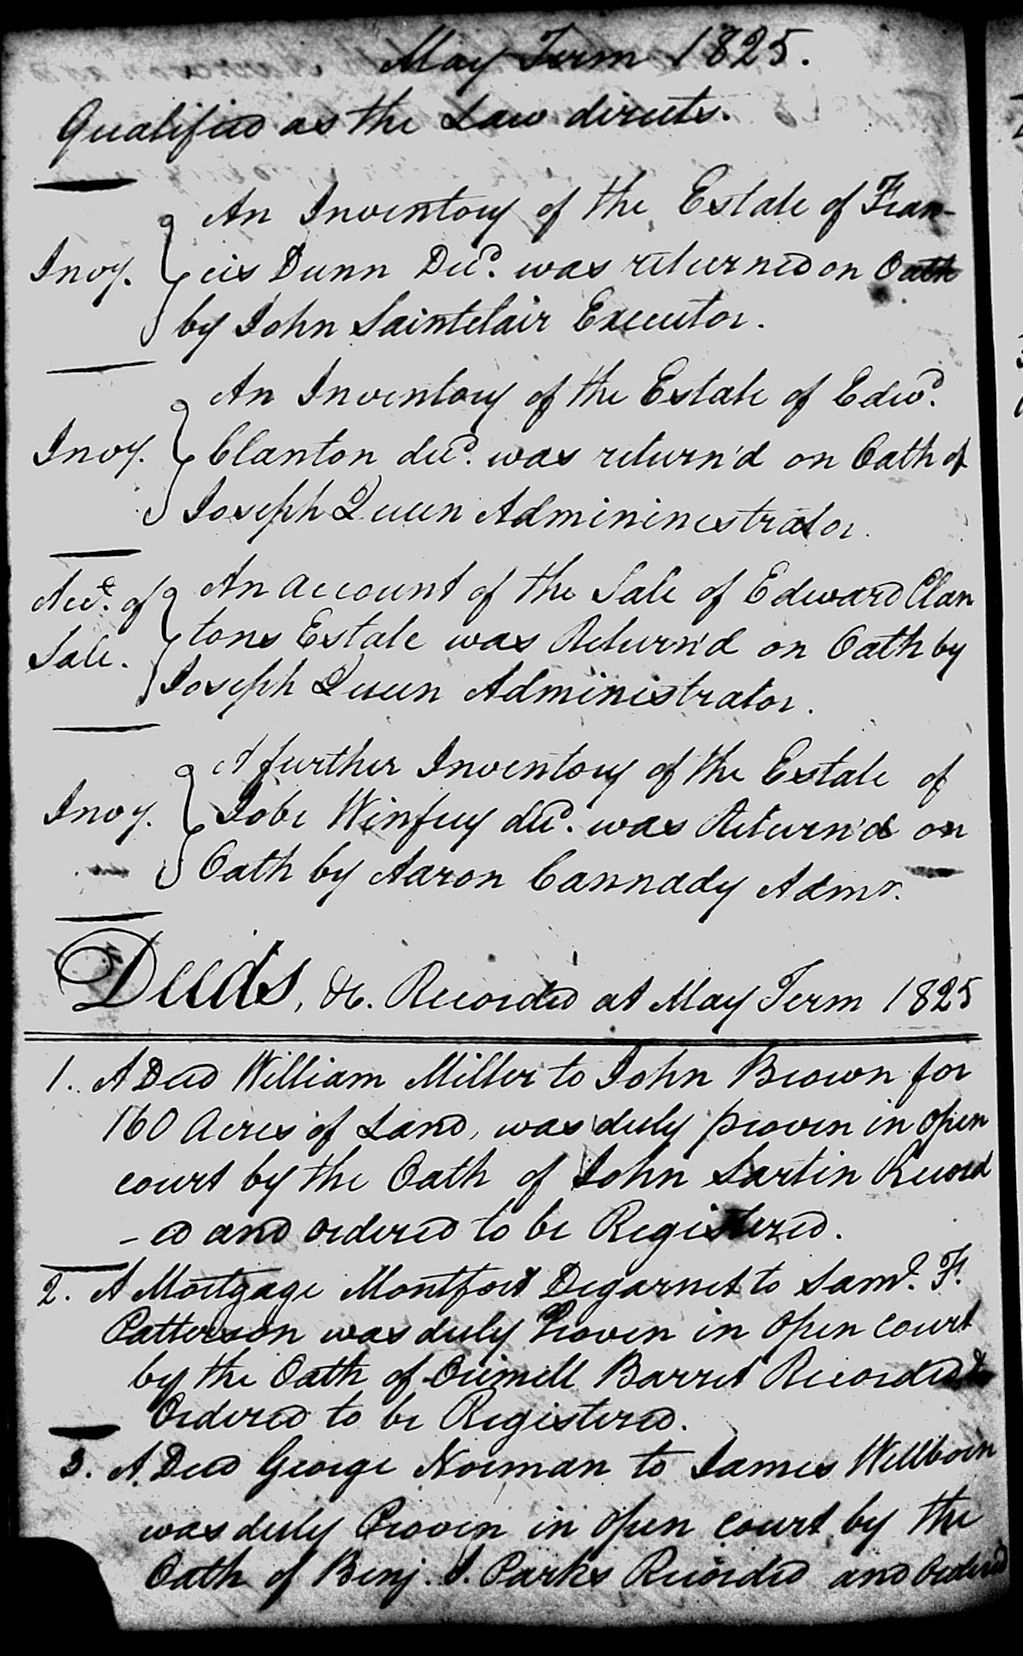 May Term 1825.
Qualified as the Law directs.
An Inventory of the Estate of Fran-
Invy. cis Dunn Decd. was returned on Oath
by John Saintclair Executor.
An Inventory of the Estate of Edwd.
Invy. Clanton decd. was return'd on Oath of
Joseph Queen Admininistrator.
Acct. of An account of the Sale of Edward Clan
Sale. tons Estate was Return'd on Oath by
Joseph Queen Administrator.
A further Inventory of the Estate of
Invy. Jobe Winfrey decd. was Return'd on
Oath by Aaron Cannady Admr.
Deeds, &c. Recorded at May Term 1825
1. A Deed William Miller to John Brown for
160 Acres of Land, was duly proven in open
court by the Oath of John Sartin Record
-ed and ordered to be Registered.
2. A Mortgage Montford Degarnet to Saml. F.
Patterson was duly Proven in Open court
by the Oath of Barret Recorded &
Ordered to be Registered.
3. A Deed George Norman to James Wellborn
was duly Proven in open court by the
Oath of Benj. S. Parks Recorded and Ordered